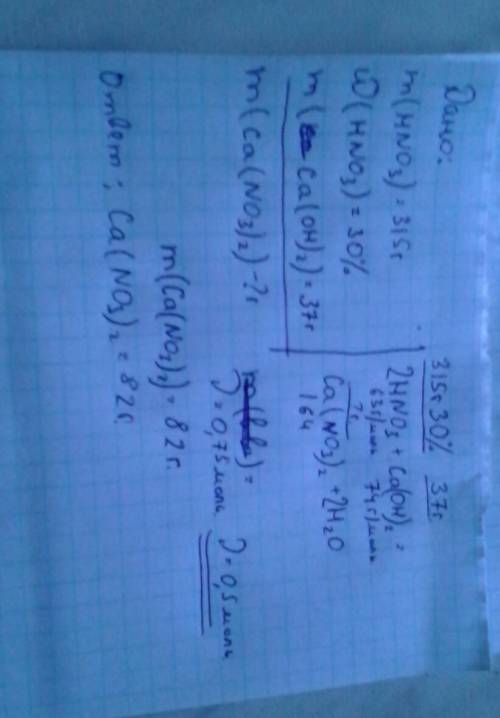 Дано:
m(HNO₃) = 315г
ω(HNO₃) = 30%
m(Ca(OH)₂) = 37г
m(Ca(NO₃)₂) - ? г
315г 30% 37г
2HNO₃ + Ca(OH)₂ =
63г/моль 74г/моль
?г
Ca(NO₃)₂ + 2H₂O
164
ν = 0,75 моль ν = 0,5 моль
m(Ca(NO₃)₂) = 82г.
Ответ: Ca(NO₃)₂ = 82г.